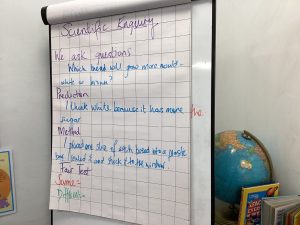 Scientific Enquiry
We ask questions
Which bread will grow more mould -
white or brown?
Prediction
I think white because it has more
sugar
Method
I placed one slice of each bread into a plastic
bag, sealed it and stuck it to the window.
Fair test
Same:-
Different:-